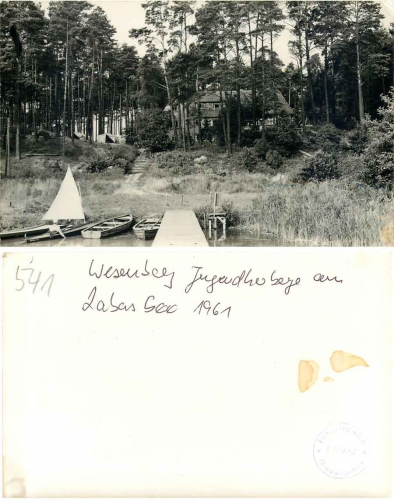 541
Wesenberg Jugendherberge am
Labus See 1961